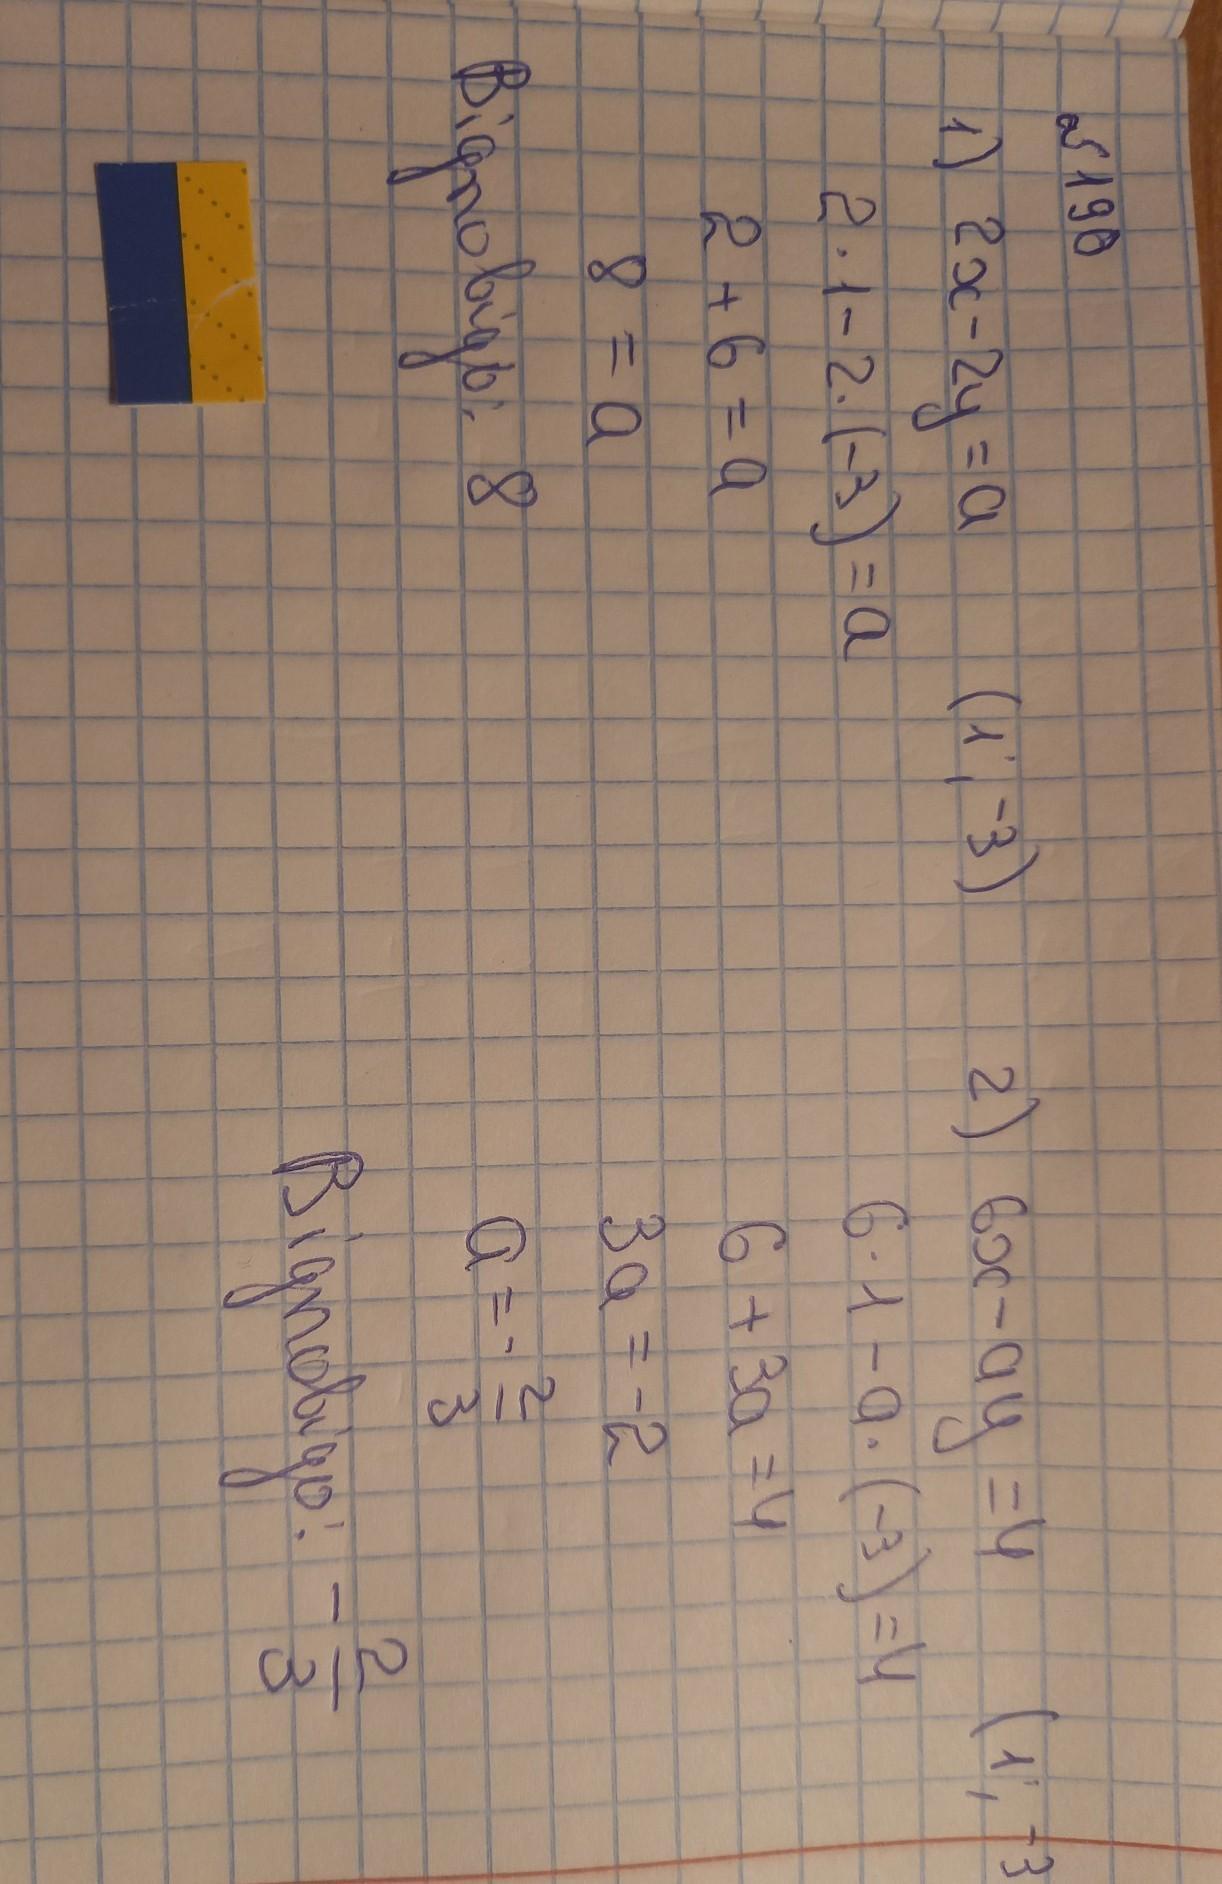 №190
1) 2x-2y=a (1; -3)
2·1-2·(-3)=a
2+6=a
8=a
Відповідь: 8
2) 6x-ay=4 (1; -3
6·1-a·(-3)=4
6+3a=4
3a=-2
a=-2/3
Відповідь: -2/3